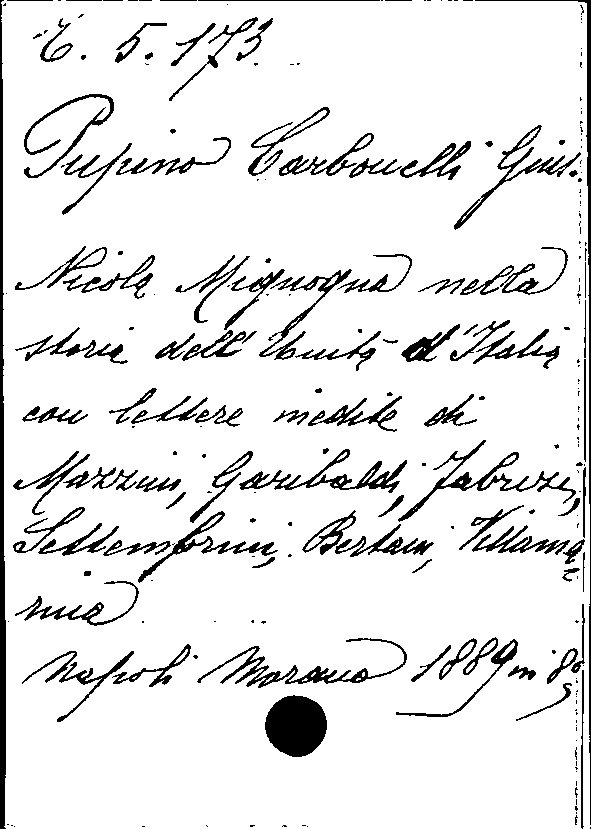 E. 5. 173
Pupino Carbonelli Gius.
Nicola Mignogna nella
storia dell' Unità d'Italia
con lettere inedite di
Mazzini, Garibaldi, Fabrizi,
Settembrini, Bertani, Villama
rina
Napoli Morano 1889 in 8º